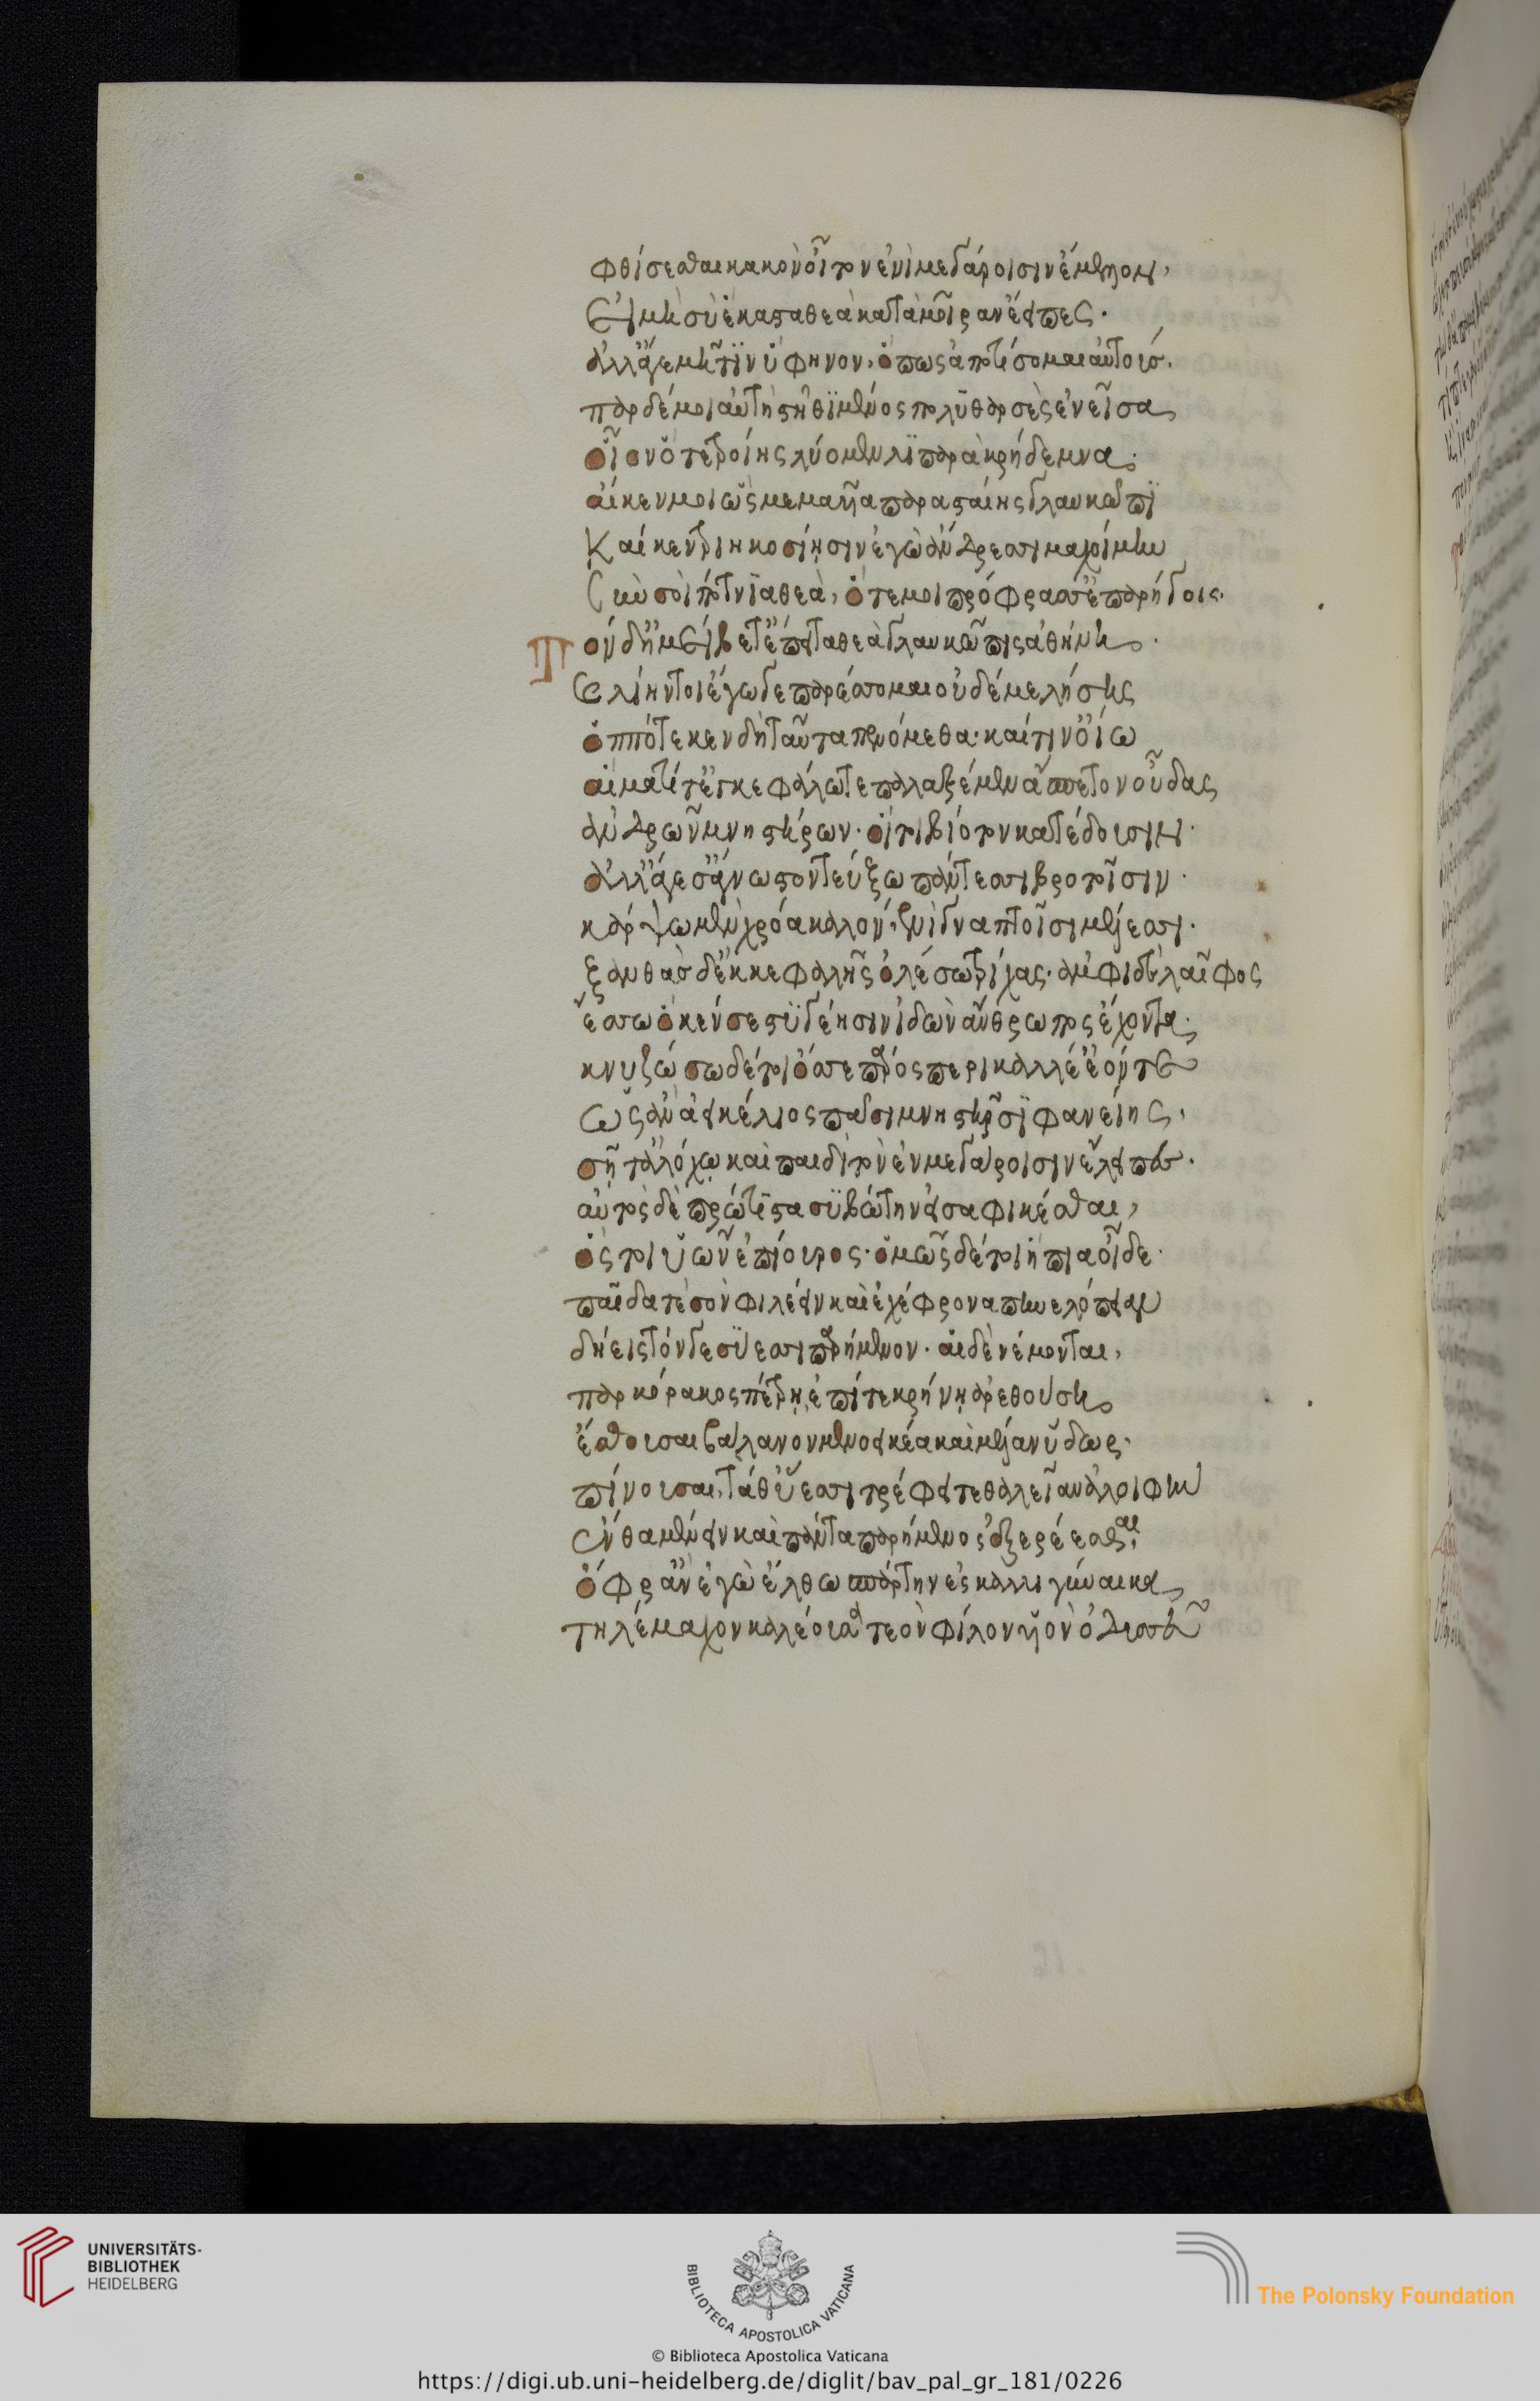 φθίσεσθαι κακὸν οἶτον ἐνὶ μεγάροισιν ἔμελλον,
εἰ μὴ σὺ ἕκαστα θεὰ κατὰ μοῖραν ἔειπες.
ἀλλ' ἄγε μῆτιν ὕφηνον, ὅπως ἀποτίσομαι αὐτούς.
πὰρ δέ μοι αὐτὴ στῆθι μένος πολυθαρσὲς ἐνεῖσα,
οἷον ὅτε τροίης λύομεν λιπαρὰ κρήδεμνα.
αἴ κεν μοι ὣς μεμαυῖα παρασταίης γλαυκῶπι
καί κεν τριηκοσίησιν ἐγὼ ἄνδρεσσι μαχοίμην
σὺν σοὶ πότνια θεὰ, ὅτε μοι πρόφρασσ' ἐπαρήγοις.
Τὸν δ' ἠμείβετ' ἔπειτα θεὰ γλαυκῶπις ἀθήνη.
καὶ λίην τοι ἔγωγε παρέσσομαι οὐδέ με λήσεις
ὁππότε κεν δὴ ταῦτα πενόμεθα. καί τιν' ὀΐω
αἵματί τ' ἐγκεφάλω τε παλαξέμεν ἄσπετον οὖδας
ἀνδρῶν μνηστήρων. οἵ τοι βίοτον κατέδουσιν.
ἀλλ' ἄγε σ' ἄγνωστον τεύξω πάντεσσι βροτοῖσιν.
κάρψω μὲν χρόα καλὸν, ἐνὶ γναπτοῖσι μέλεσσι.
ξανθὰς δ' ἐκ κεφαλῆς ὀλέσω τρίχας. ἀμφὶ δὲ λαῖφος
ἕσσω ὅ κέν σε στυγέησιν ἰδὼν ἄνθρωπος ἔχοντα.
κνυζώσω δέ τοι ὄσσε πάρος περικαλλέ' ἐόντε
ὡς ἂν ἀεικέλιος πᾶσι μνηστῆρσι φανείης.
σῇ τ' ἀλόχῳ καὶ παιδὶ τὸν ἐν μεγάροισιν ἔλειπες.
αὐτὸς δὲ πρώτιστα συβώτην εἰσαφικέσθαι,
ὅς τοι ὑῶν ἐπίουρος. ὁμῶς δέ τοι ἤπια οἶδε.
παῖδά τε σὸν φιλέει καὶ ἐχέφρονα πηνελόπειαν
δήεις τόν γε σύεσσι παρήμενον. αἱ δὲ νέμονται,
πὰρ κόρακος πέτρῃ, ἐπί τε κρήνῃ ἀρεθούσῃ
ἔσθουσαι βάλανον μενοεικέα καὶ μέλαν ὕδωρ.
πίνουσαι. τά θ' ὕεσσι τρέφει τεθαλεῖαν ἀλοιφὴν
ἔνθα μένειν καὶ πάντα παρήμενος ἐξερέεσθαι,
ὄφρ' ἂν ἐγὼ ἔλθω σπάρτην ἐς καλλιγύναικα,
τηλέμαχον καλέουσα τεὸν φίλον υἱὸν ὀδυσσεῦ